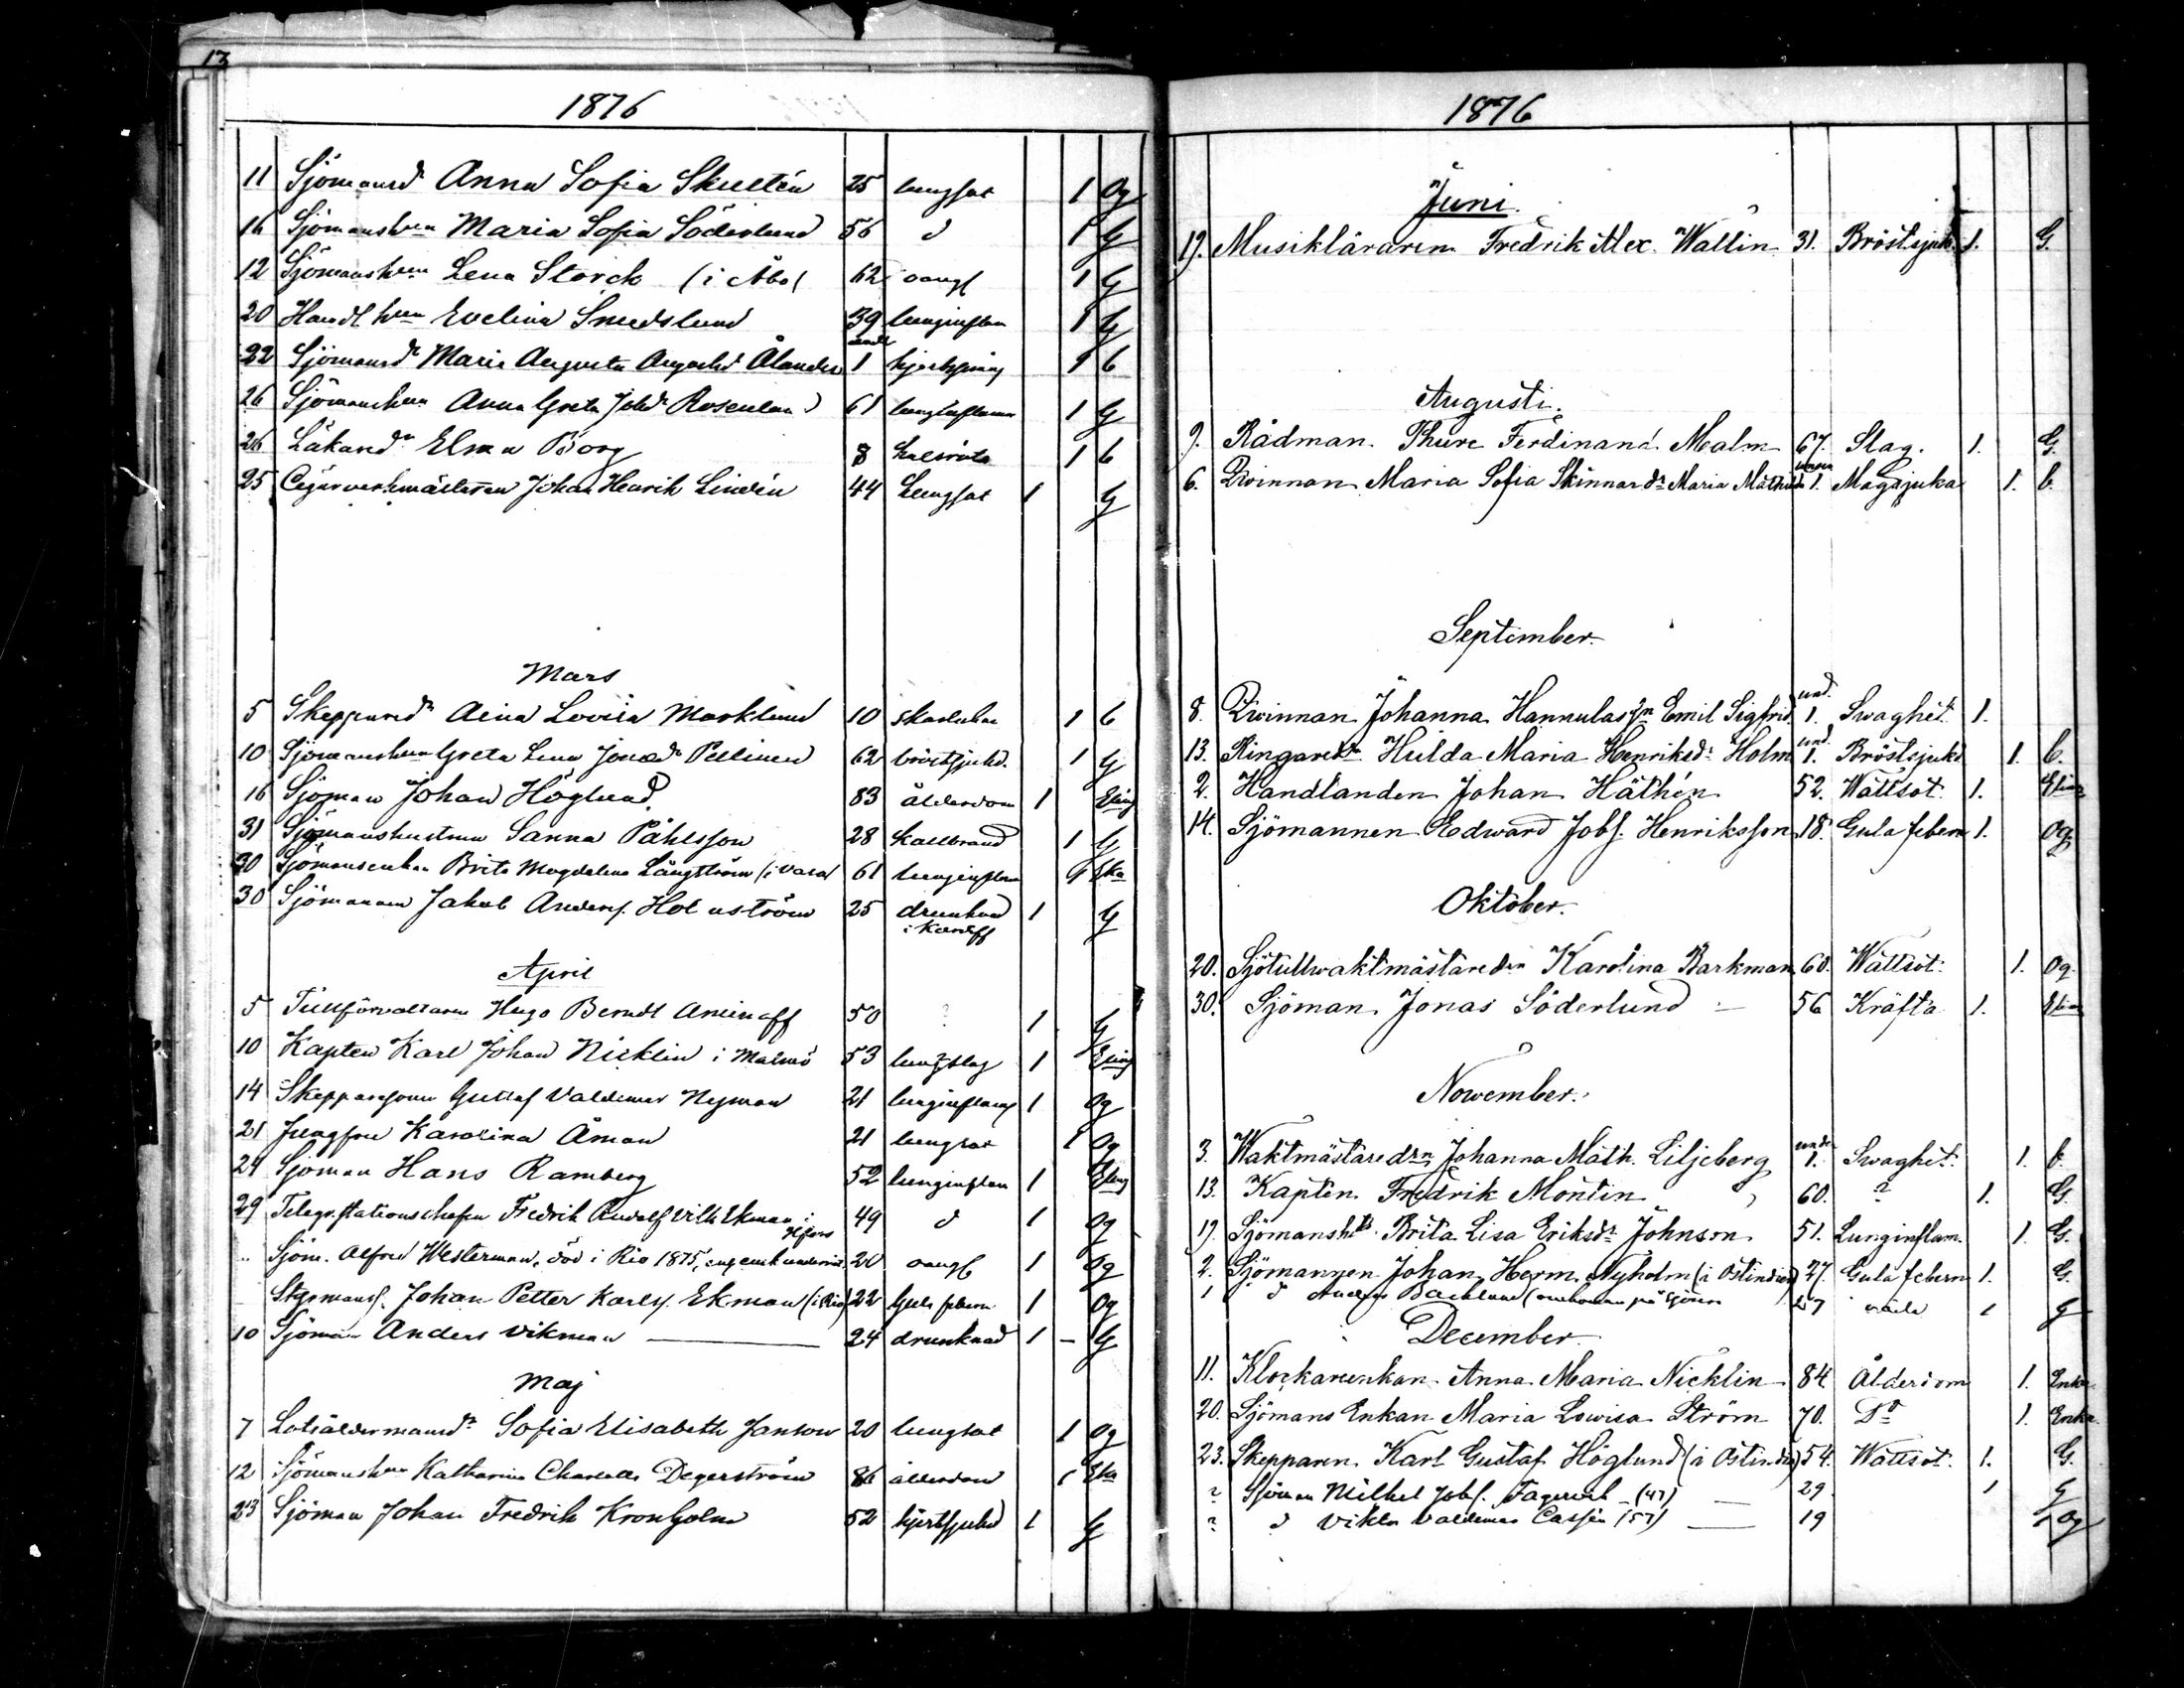 13
1876
11 Sjömansdr Anna Sofia Skultén 25 lungsot 1 Og
16 Sjömanshun Maria Sofia Söderlund 56 d 1 G
12 Sjömanshun Lena Storck (i Åbo) 62 oangf 1 G
20 Handl hun Evelina Smedslund 39 lunginflam 1 G
22 Sjömansdr Maria Augusta Ålander under 1 1 b
26 Sjömanshun Anna Greta Johdr Rosenlund 61 lunginflamm 1 G
26 Läkaredr Elma Borg 8 halsröta 1 b
25 Cigarrverksmästaren Johan Henrik Lindén 44 Lungsot 1 G
Mars
5 Skepparedr Aina Lovisa Marklund 10 skarlakan 1 b
10 Sjömanshun Greta Lena Jonasdr Pellinen 62 bröstsjukd. 1 G
16 Sjöman Johan Höglund 83 ålderdom 1 Eling
31 Sjömanshustrun Sanna Påhlsson 28 kallbrand 1 G
30 Sjömansenkan Brita Magdalena Långström (i Vasa) 61 lunginflam 1 Eka
30 Sjömannen Jakob Anderss. Holmström 25 drunknad 1 G
i Kardiff
April
5 Tullförvaltaren Hugo Berndt Aminoff 50 ? 1 G
10 Kapten Karl Johan Nicklin i Malmö 53 lungslag 1 Eling
14 Skepparesonen Gustaf Valdemar Nyman 21 lunginflamm 1 Og
21 Jungfru Karolina Åman 21 lungsot 1 Og
24 Sjöman Hans Ramberg 52 lunginflam 1 Eling
29 Telegr.stationschefen Fredrik Rudolf Vilh Ekman i Hfors 49 d 1 Og
Sjöm. Alfred Westerman, död i Rio 1875, 20 oangf 1 Og
Johan Petter Karlss. Ekman (i Rio) 22 Gula febern 1 Og
10 Sjöman Anders Vikman 24 drunknad 1 - G
Maj
7 Lotsåldermansdr Sofia Elisabeth Janson 20 lungsot 1 Og
12 Sjömanshun Katharina Charlotta Degerström 86 ålderdom 1 Eka
23 Sjöman Johan Fredrik Kronholm 52 hjertsjukd 1 G
1876
Juni.
19. Musikläraren Fredrik Alex. Wallin 31. Bröstsjukd. 1. G.
Augusti.
9. Rådman Thure Ferdinand Malm 67. Slag. 1. G.
6. Qvinnan Maria Sofia Skinnardr Maria Mathilda under 1. Magsjuka 1. b.
September.
8. Qvinnan Johanna Hannulas sn Emil Sigfrid und. 1. Swaghet. 1.
13. Ringaredr Hulda Maria Henriksdr Holm und. 1. Bröstsjukd 1. b.
2. Handlanden Johan Häthén 52. Wattsot. 1. Eling
14. Sjömannen Edward Johs. Henriksson 18. Gula febern 1. Og
Oktober.
20. Sjötullwaktmästaredrn Karolina Barkman 60. Wattsot. 1. Og.
30. Sjöman Jonas Söderlund 56 Kräfta 1. Eling
Nowember.
3. Waktmästaredrn Johanna Math. Liljeberg under 1. Swaghet. 1. b.
13. Kapten Fredrik Montin 60. ? 1. G.
19. Sjömansht. Brita Lisa Eriksdr Johnson 51. Lunginflam. 1. G.
2. Sjömannen Johan Herm. Nyholm (i Ostindien) 27. Gula febern 1. G.
1 d Anders Backlund (omkommen på sjönn 27 våda 1 G
December.
11. Klockareenkan Anna Maria Nicklin 84 Ålderdom 1. Enka
20. Sjömans Enkan Maria Lowisa Ström 70. Do 1. Enka.
23. Skepparen Karl Gustaf Höglund (i Ostindien) 54. Wattsot. 1. G.
? Sjöman Mikhel Johs. Fagervik (47) 29 1 G
? d Viktor Valdemar Cassén (57) 19 1 Og